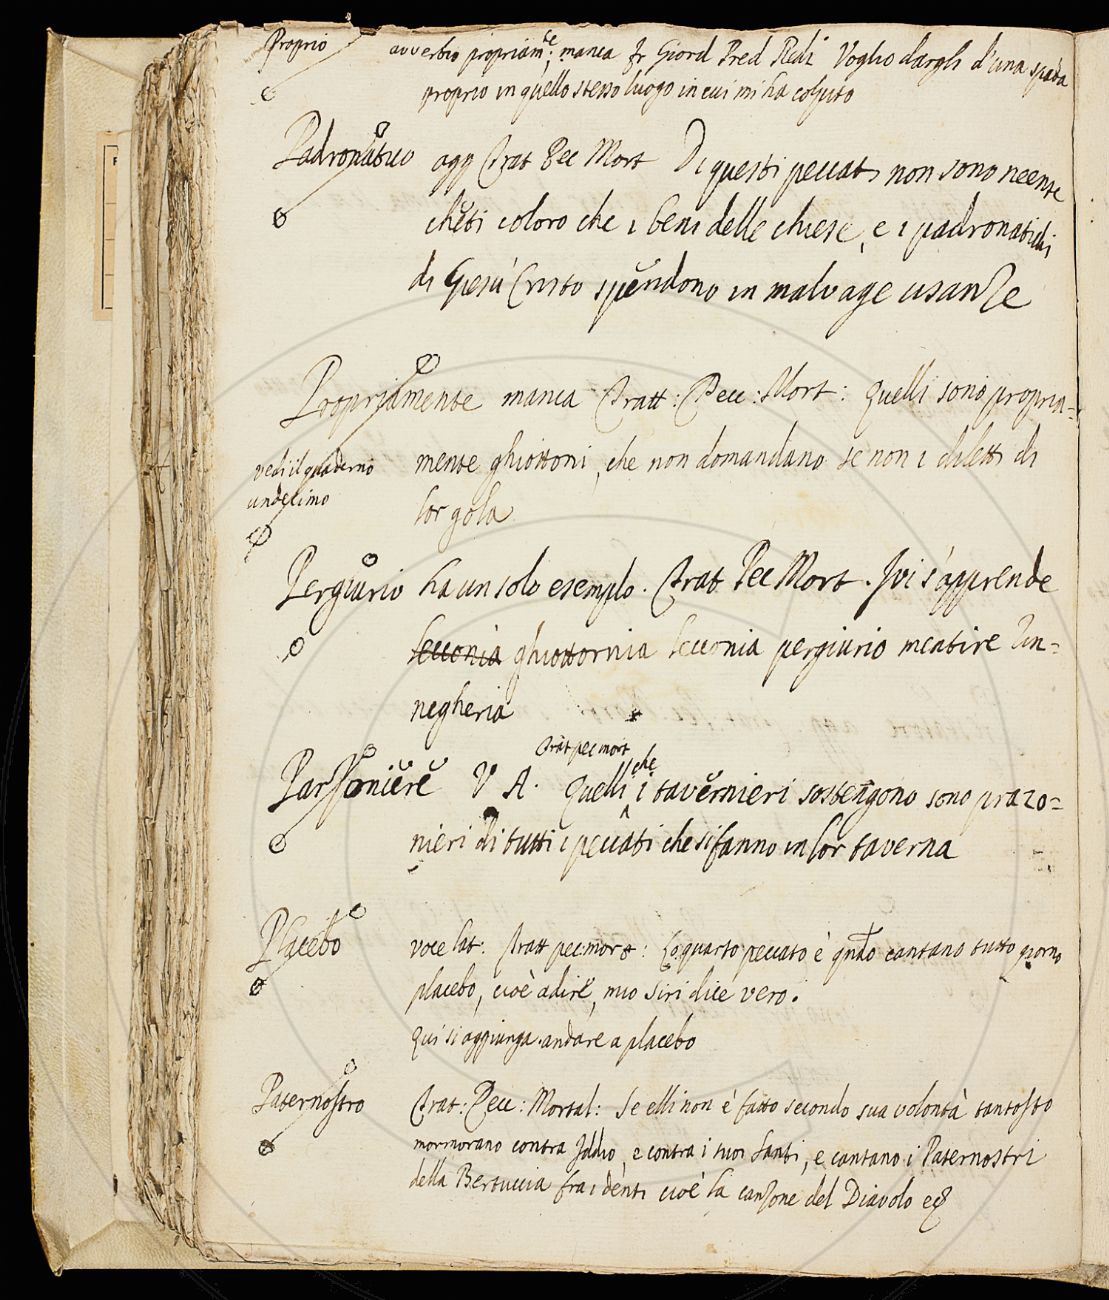 Proprio avverbio propriam.te manca fr Giord Pred Redi Voglio dargli d'una spada
proprio in quello stesso luogo in cui mi ha colpito
Padronatico agg Trat Pec Mort Di questi peccati non sono neente
cheti coloro che i beni delle chiese, e i padronatichi
di Giesù Cristo spendono in malvage usanze
Propriamente manca Tratt: Pecc: Mort: Quelli sono propria=
vedi il quaderno mente ghiottoni, che non domandano se non i diletti di
undecimo lor gola
Pergiurio ha un solo esemplo. Trat Pec Mort. Ivi s'apprende
lecconia ghiottornia lecconia pergiurio mentire an=
negheria
Trat pec mort che
Parzoniere V A. Quelli i tavernieri sostengono sono prazo=
nieri di tutti i peccati che si fanno in lor taverna
Placebo voce lat: Tratt pec: mort: Lo quarto peccato è qndo cantano tutto giorno
placebo, cioè a dire, mio siri dice vero.
qui si aggiunga andare a placebo
Paternostro Trat: Pecc: Mortal: Se elli non è fatto secondo sua volontà tantosto
mormorano contra Iddio, e contra i suoi Santi, e cantano i Paternostri
della Bertuccia fra i denti cioè la canzone del Diavolo ec